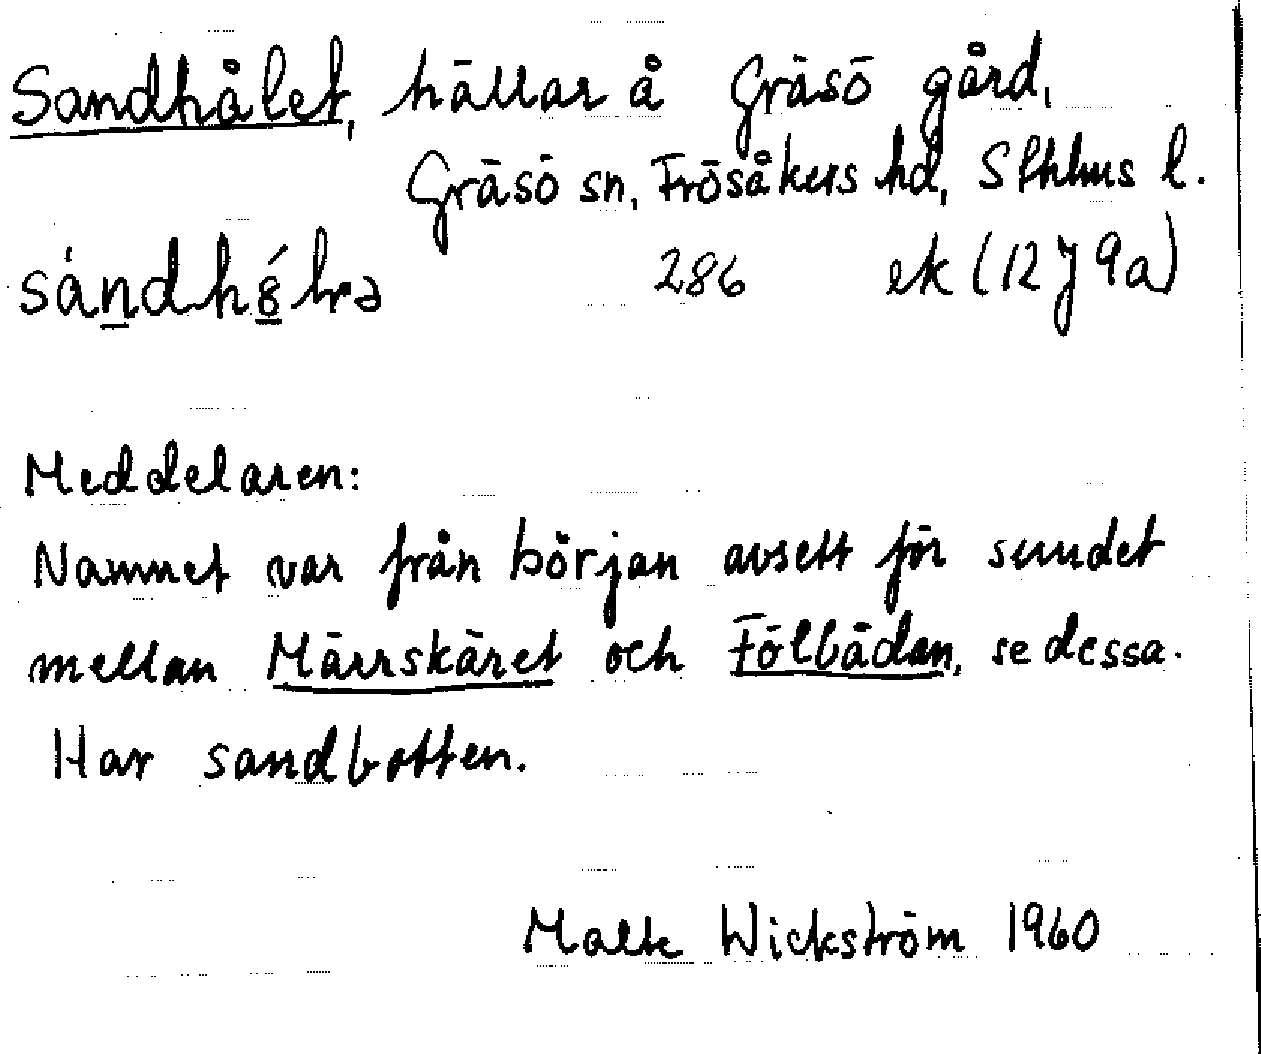 Sandhålet, hällar å Gräsö gård,
Gräsö sn, Frösåkers hd, Sthlms l.
286 ek (12J 9a)
Meddelaren:
Namnet var från början avsett för sundet
mellan Märrskäret och Fölbådan, se dessa.
Har sandbotten.
Malte Wickström 1960